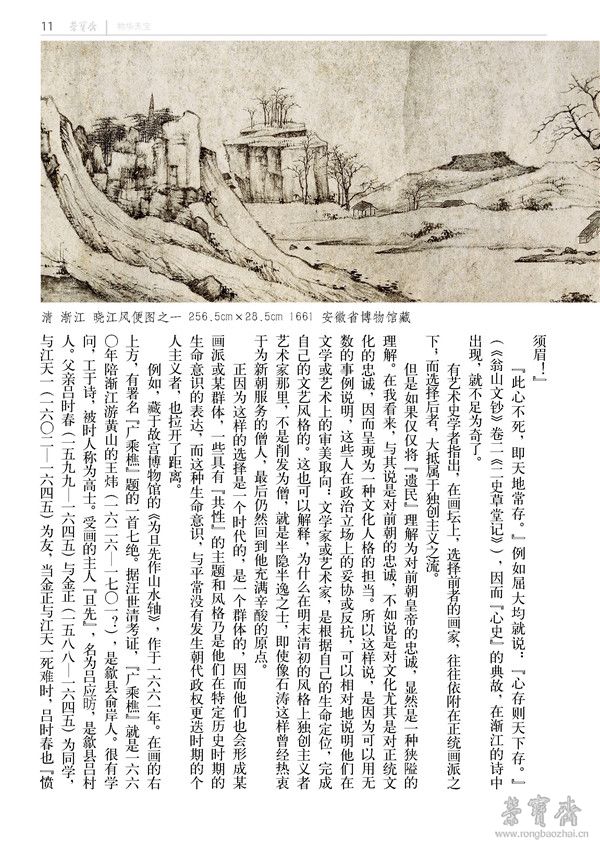 11
荣宝斋
物华天宝
清 渐江 晓江风便图之一 256.5cm×28.5cm 1661 安徽省博物馆藏
须眉！』
『此心不死，即天地常存。』例如屈大均就说：『心存则天下存。』
（《翁山文钞》卷二《二史草堂记》），因而『心史』的典故，在渐江的诗中
出现，就不足为奇了。
有艺术史学者指出，在画坛上，选择前者的画家，往往依附在正统画派之
下；而选择后者，大抵属于独创主义之流。
但是如果仅仅将『遗民』理解为对前朝皇帝的忠诚，显然是一种狭隘的
理解。在我看来，与其说是对前朝的忠诚，不如说是对文化尤其是对正统文
化的忠诚，因而呈现为一种文化人格的担当。所以这样说，是因为可以用无
数的事例说明，这些人在政治立场上的妥协或反抗，可以相对地说明他们在
文学或艺术上的审美取向：文学家或艺术家，是根据自己的生命定位，完成
自己的文艺风格的。这也可以解释，为什么在明末清初的风格上独创主义者
艺术家那里，不是削发为僧，就是半隐半逸之士，即使像石涛这样曾经热衷
于为新朝服务的僧人，最后仍然回到他充满辛酸的原点。
正因为这样的选择是一个时代的，是一个群体的，因而他们也会形成某
画派或某群体，一些具有『共性』的主题和风格乃是他们在特定历史时期的
生命意识的表达，而这种生命意识，与平常没有发生朝代政权更迭时期的个
人主义者，也拉开了距离。
例如，藏于故宫博物馆的《为旦先作山水轴》，作于一六六一年。在画的右
上方，有署名『广乘樵』题的一首七绝。据汪世清考证，『广乘樵』就是一六六
〇年陪渐江游黄山的王炜（一六二六—一七〇一？），是歙县俞岸人。很有学
问，工于诗，被时人称为高士。受画的主人『旦先』，名为吕应昉，是歙县吕村
人。父亲吕时春（一五九九—一六四五）与金正（一五八八—一六四五）为同学，
与江天一（一六〇二—一六四五）为友，当金正与江天一死难时，吕时春也『愤
荣宝斋
www.rongbaozhai.cn